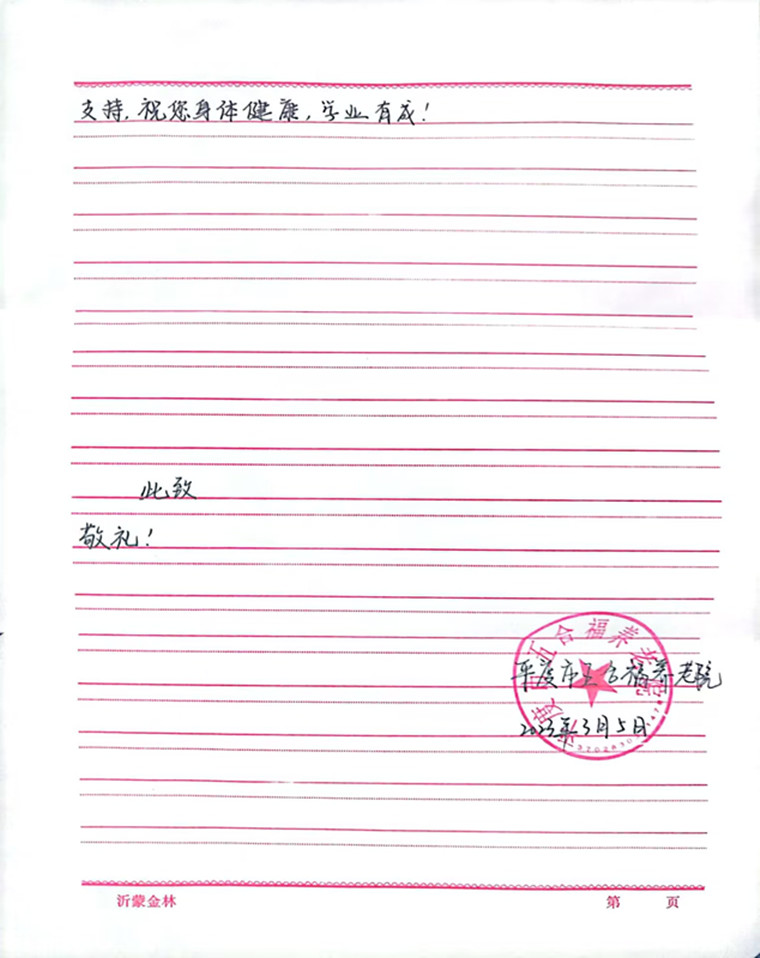 支持,祝您身体健康,学业有成!
此致
敬礼!
平度市五合福养老院
2023年3月5日
沂蒙金林
第 页